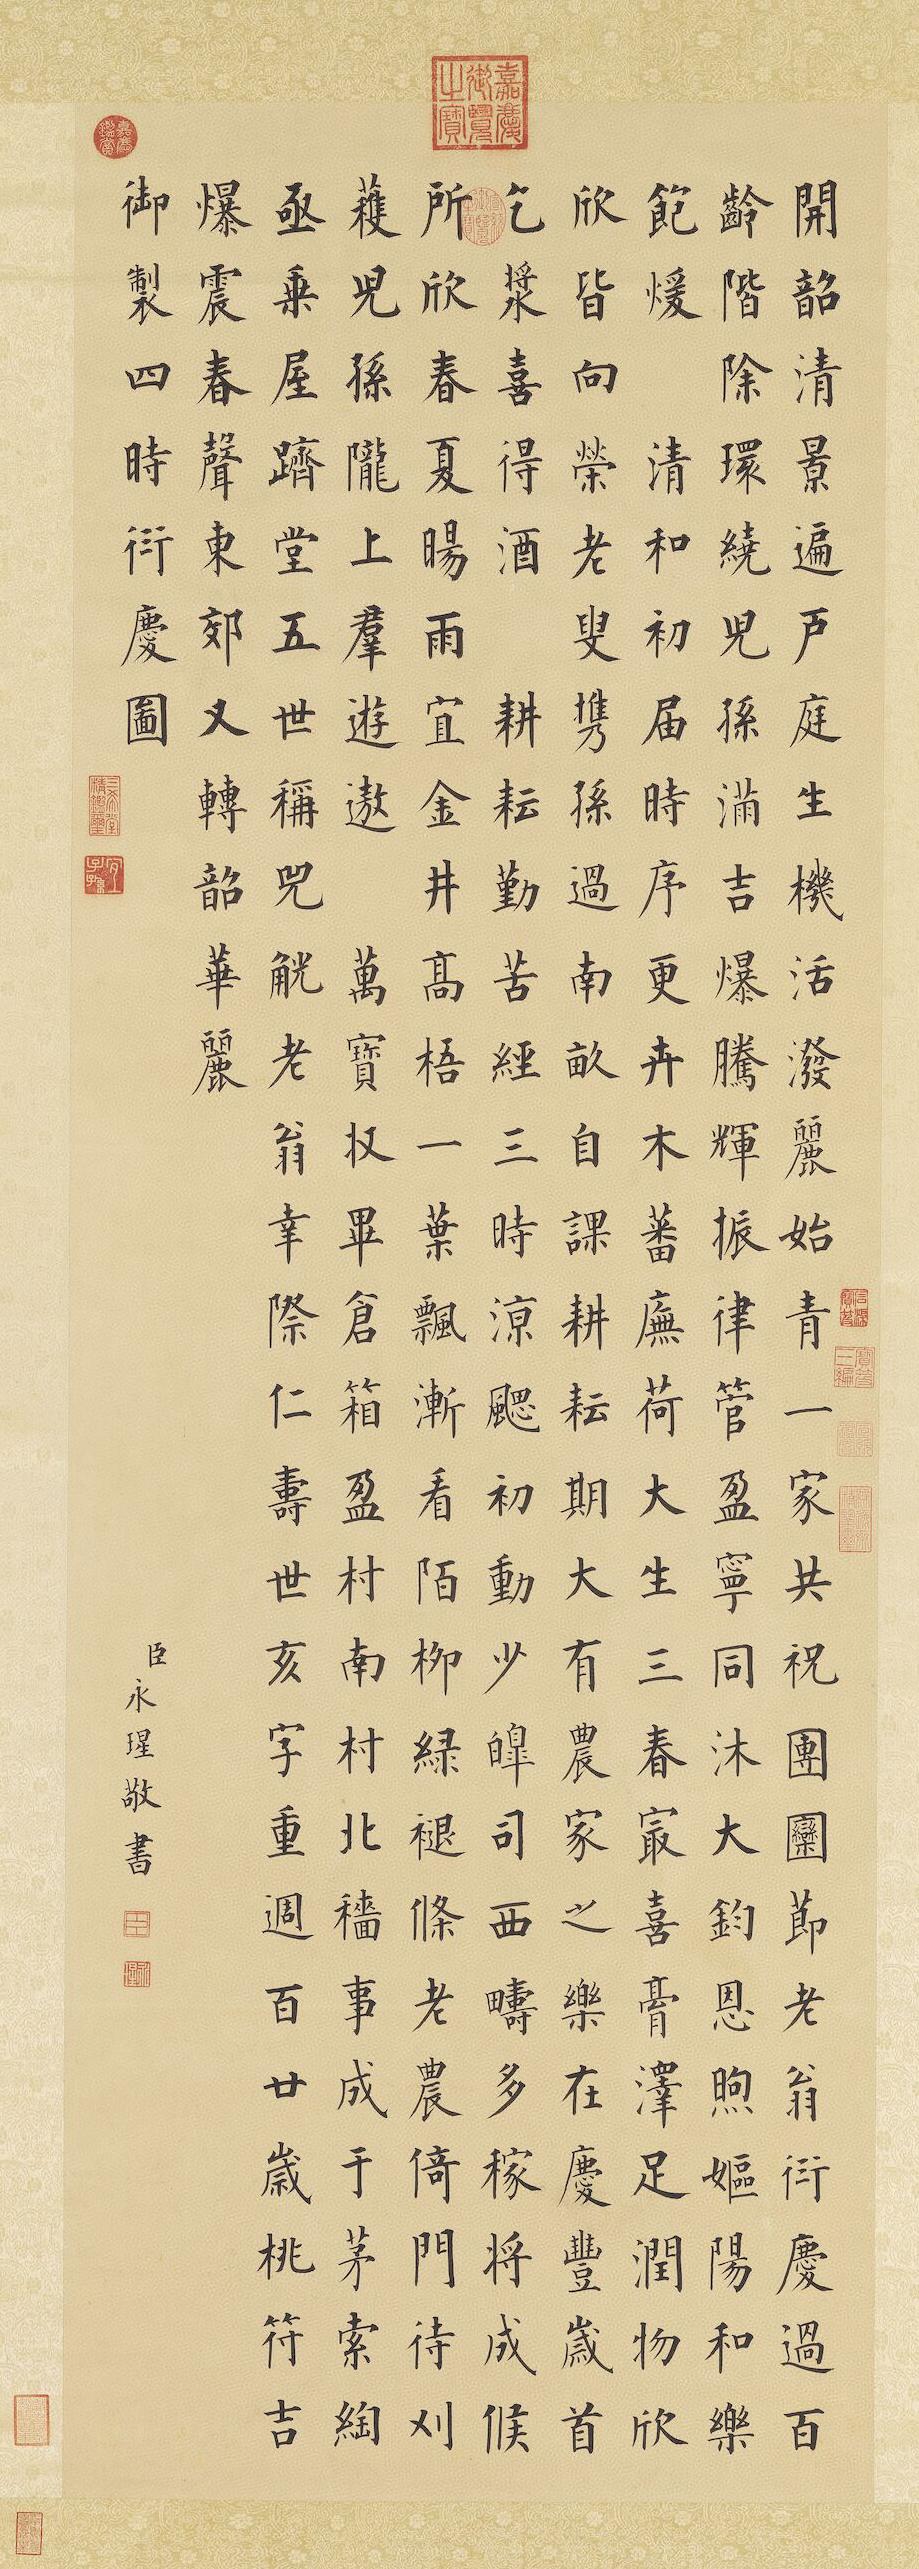 開韶清景遍戶庭生機活潑麗始青一家共祝團圞節老翁衍慶過百
齡階除環繞兒孫滿吉爆騰輝振律管盈寧同沐大鈞恩煦嫗陽和樂
飽煖 清和初届時序更卉木蕃廡荷大生三春冣喜膏澤足潤物欣
欣皆向榮老叟攜孫過南畝自課耕耘期大有農家之樂在慶豐歲首
乞漿喜得酒 耕耘勤苦經三時涼颸初動少皞司西疇多稼將成候
所欣春夏暘雨宜金井高梧一葉飄漸看陌柳綠褪條老農倚門待刈
穫兒孫隴上羣遊遨 萬寶收畢倉箱盈村南村北穡事成于茅索綯
亟乗屋躋堂五世稱兕觥老翁幸際仁壽世亥字重週百廿歲桃符吉
爆震春聲東郊又轉韶華麗
御製四時衍慶圖
臣永瑆敬書
嘉慶御覽之寶
嘉慶鑑賞
三希堂精鑑璽
宜子孫
石渠寶笈
寶笈三編
臣
永瑆